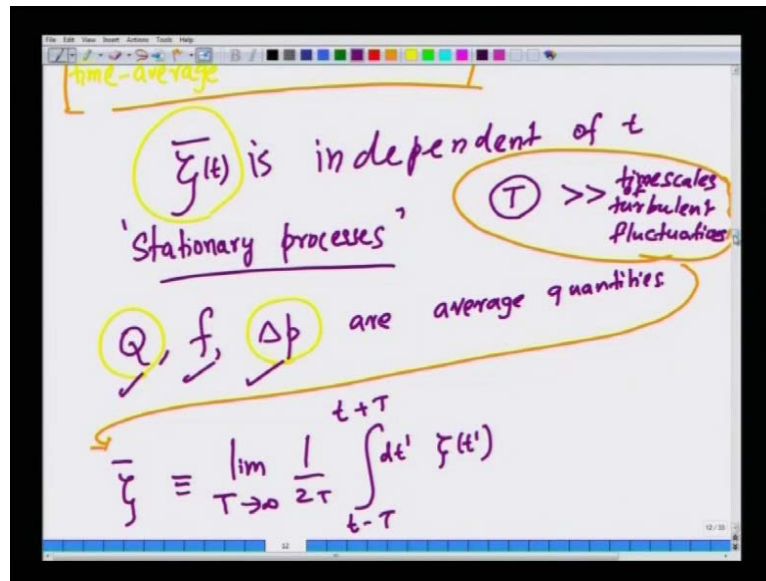 File Edit View Insert Actions Tools Help
time-average
ζ̄(t) is independent of t
T >> timescales of turbulent fluctuations
'Stationary processes'
Q, f, Δp are average quantities
ζ̄ ≡ lim T→∞ 1/2T ∫ t-T t+T dt' ζ(t')
12/33
12